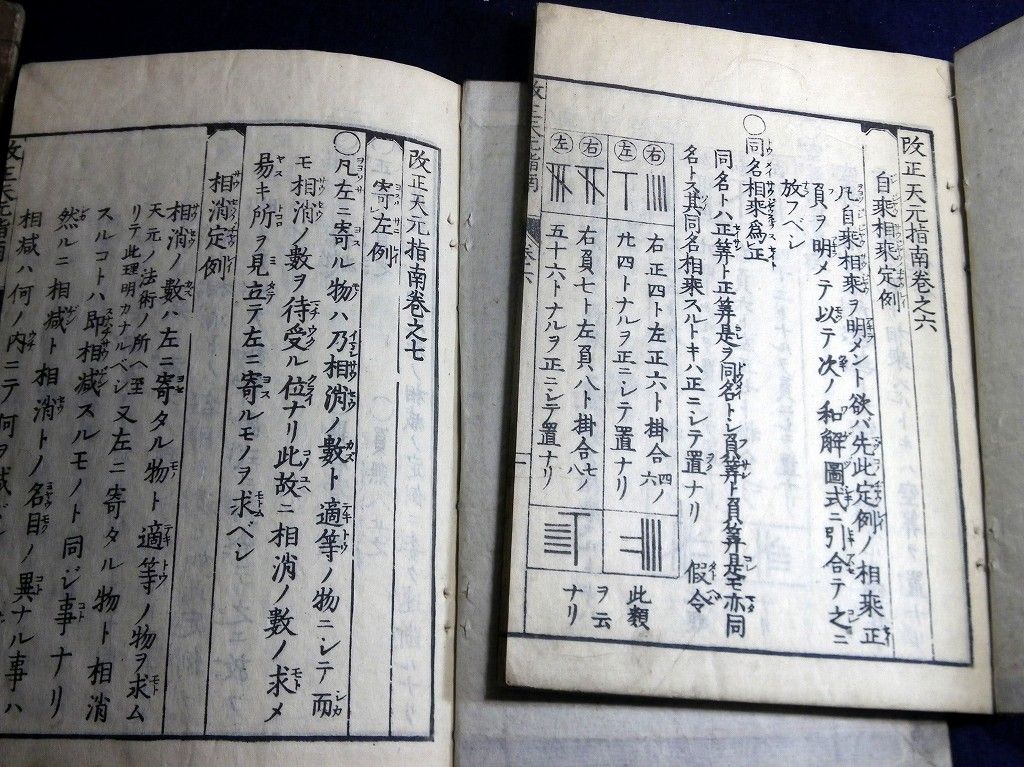 改正天元指南巻之六
自乘相乘定例
凡自乘相乘ヲ明メント欲バ先此定例ノ相乘正
負ヲ明メテ以テ次ノ和解圖式ニ引合テ之ニ
放フベシ
〇同名相乘爲正
同名トハ正筭ト正筭是ヲ同名トシ負筭ト負筭是モ亦同
名トス其同名相乘スルトキハ正ニシテ置ナリ 假令
右 右正四ト左正六ト掛合四六ノ
左 廿四トナルヲ正ニシテ置ナリ
右 右負七ト左負八ト掛合七八ノ
左 五十六トナルヲ正ニシテ置ナリ
此類
ヲ云
ナリ
改正天元指南
改正天元指南巻之七
寄左例
〇凡左ニ寄ル物ハ乃相消ノ數ト適等ノ物ニシテ而
モ相消ノ數ヲ待受ル位ナリ此故ニ相消ノ數ノ求メ
易キ所ヲ見立テ左ニ寄ルモノヲ求ベシ
相消定例
相消ノ數ハ左ニ寄タル物ト適等ノ物ヲ求ム
天元ノ法術ノ所ヘ至
リテ此理明カナルベシ
又左ニ寄タル物ト相消
スルコトハ即相減スルモノト同ジ事ナリ
然ルニ相減ト相消トノ名目ノ異ナル事ハ
相減ハ何ノ内ニテ何ヲ減
改正天元指南